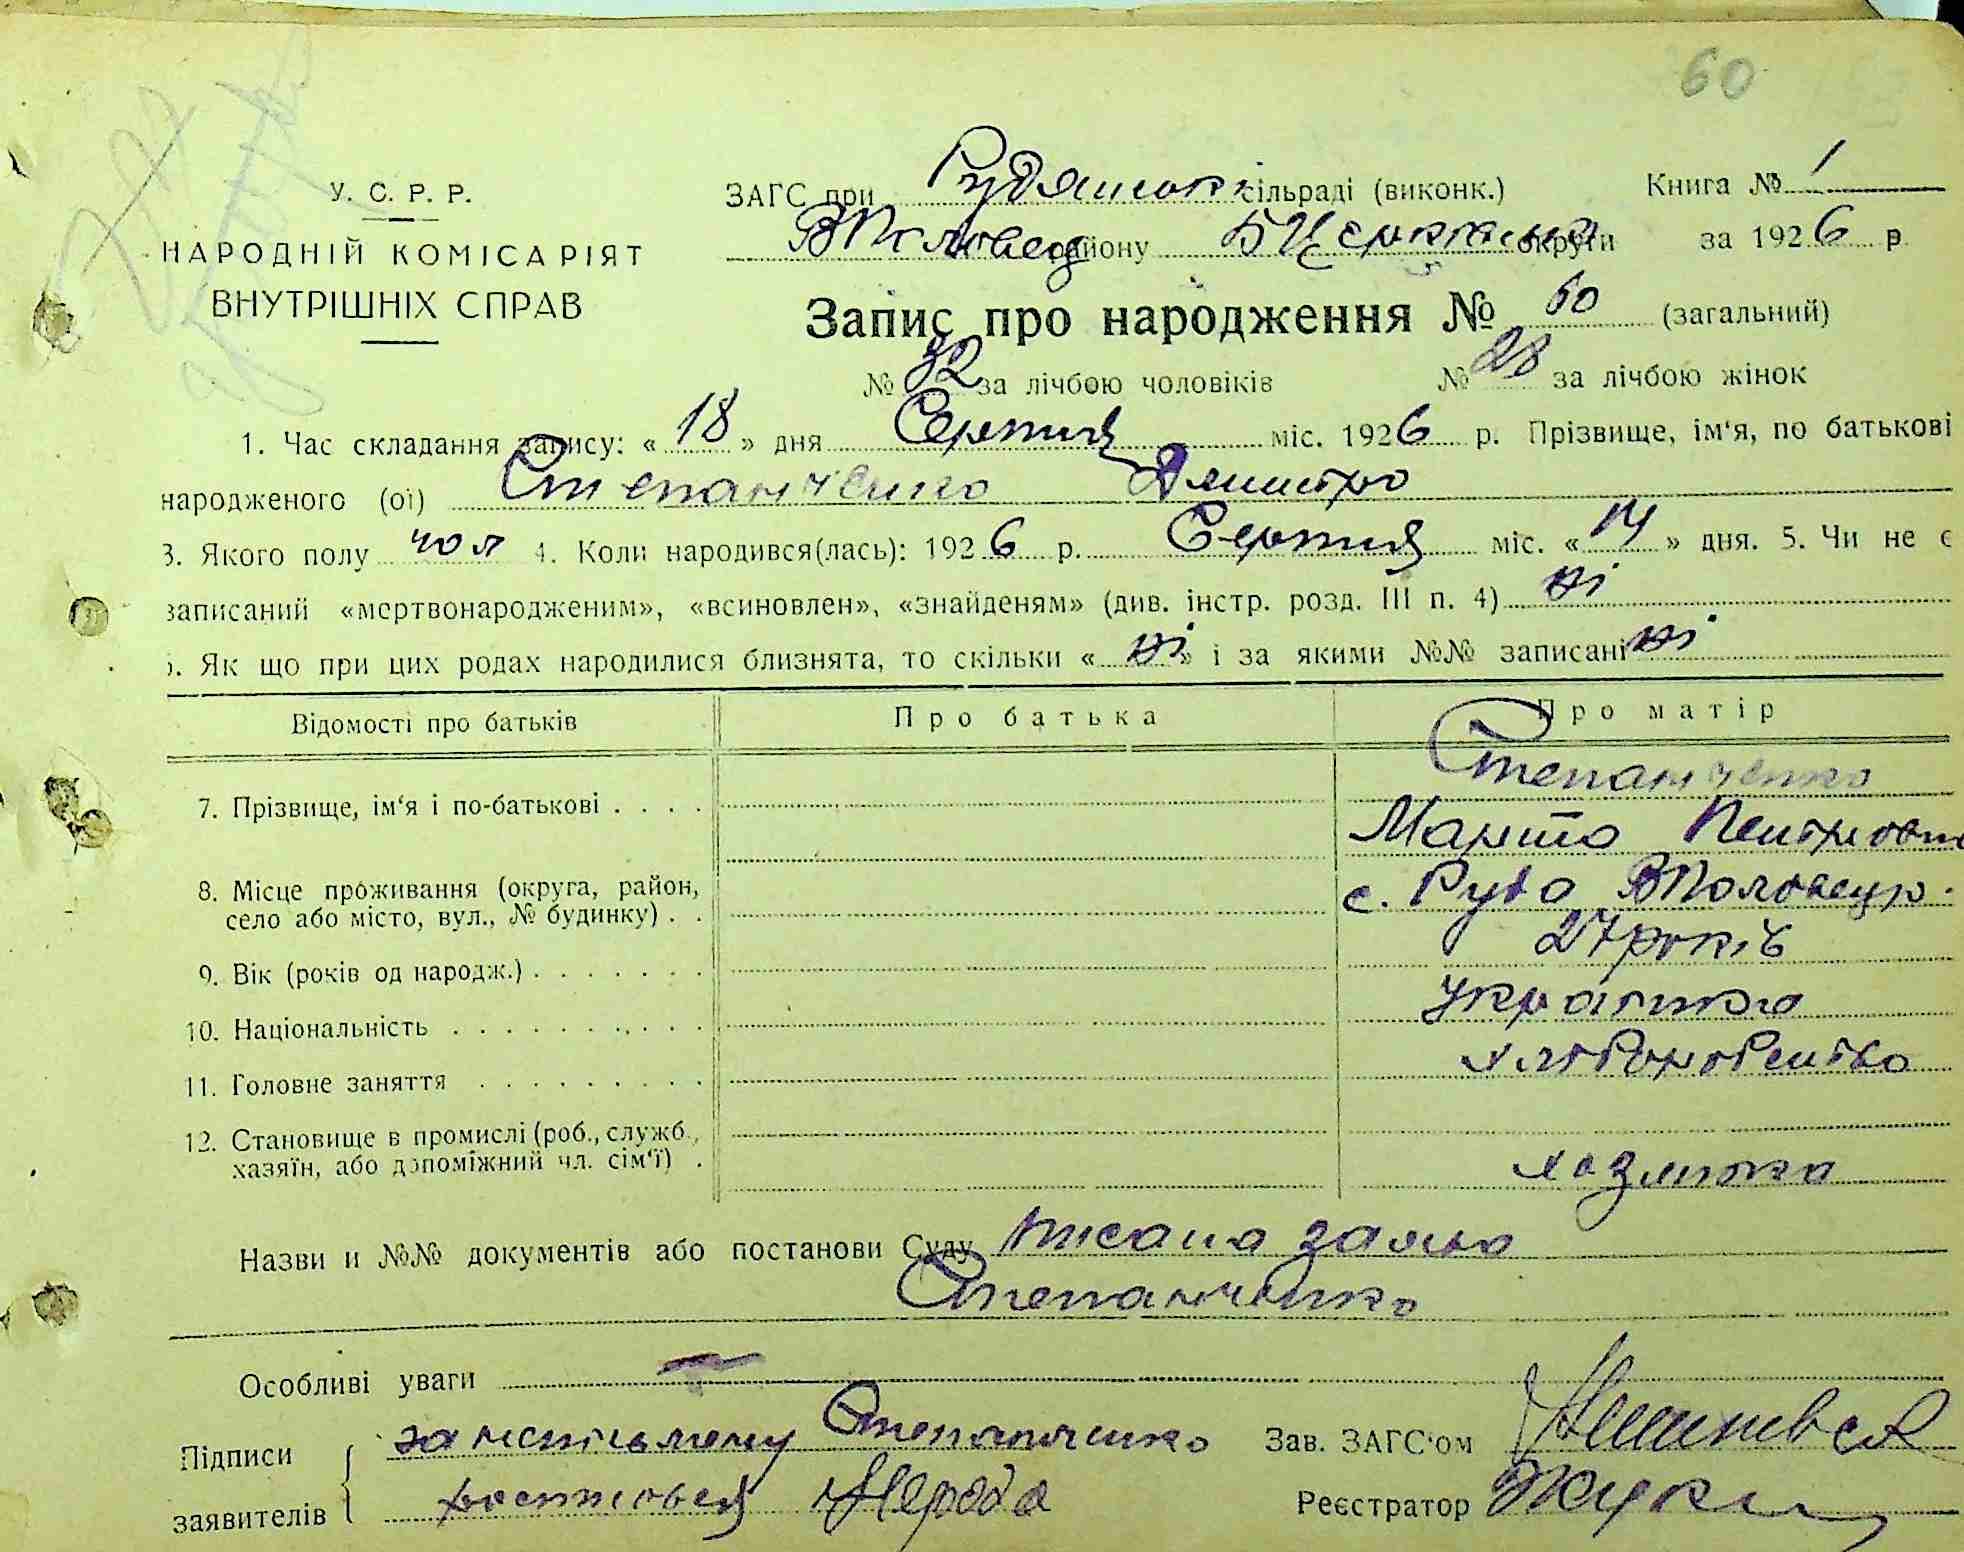 60
У. С. Р. Р.
НАРОДНІЙ КОМІСАРІЯТ
ВНУТРІШНІХ СПРАВ
ЗАГС при Рудянськ сільраді (виконк.) Книга № 1
ВПоловец району БЦерківської округи за 1926 р
Запис про народження № 60 (загальний)
№ 32 за лічбою чоловіків № 28 за лічбою жінок
1. Час складання запису: « 18 » дня Серпня міс. 1926 р. Прізвище, ім'я, по батькові
народженого (ої) Степанченко Дмитро
3. Якого полу чол 4. Коли народився(лась): 1926 р. Серпня міс. « 14 » дня. 5. Чи не є
записаний «мертвонародженим», «всиновлен», «знайденям» (див. інстр. розд. III п. 4) ні
. Як що при цих родах народилися близнята, то скільки « ні » і за якими №№ записані ні
Відомості про батьків Про батька Про матір
Степанченко
7. Прізвище, ім'я і по-батькові . . . .
Марта Петровна
8. Місце проживання (округа, район, с. Руда ВПоловецр.
село або місто, вул., № будинку) . .
27 років
9. Вік (років од народж.) . . . . . . .
10. Національність . . . . . . . . . Українка
11. Головне заняття . . . . . . . . хліборобство
12. Становище в промислі (роб., служб.,
хазяїн, або допоміжний чл. сім'ї) . хазяйка
Назви и №№ документів або постанови Суду Писана заява
Степанченко
Особливі уваги
Підписи Степанченко Зав. ЗАГС'ом
заявителів Реєстратор Жук